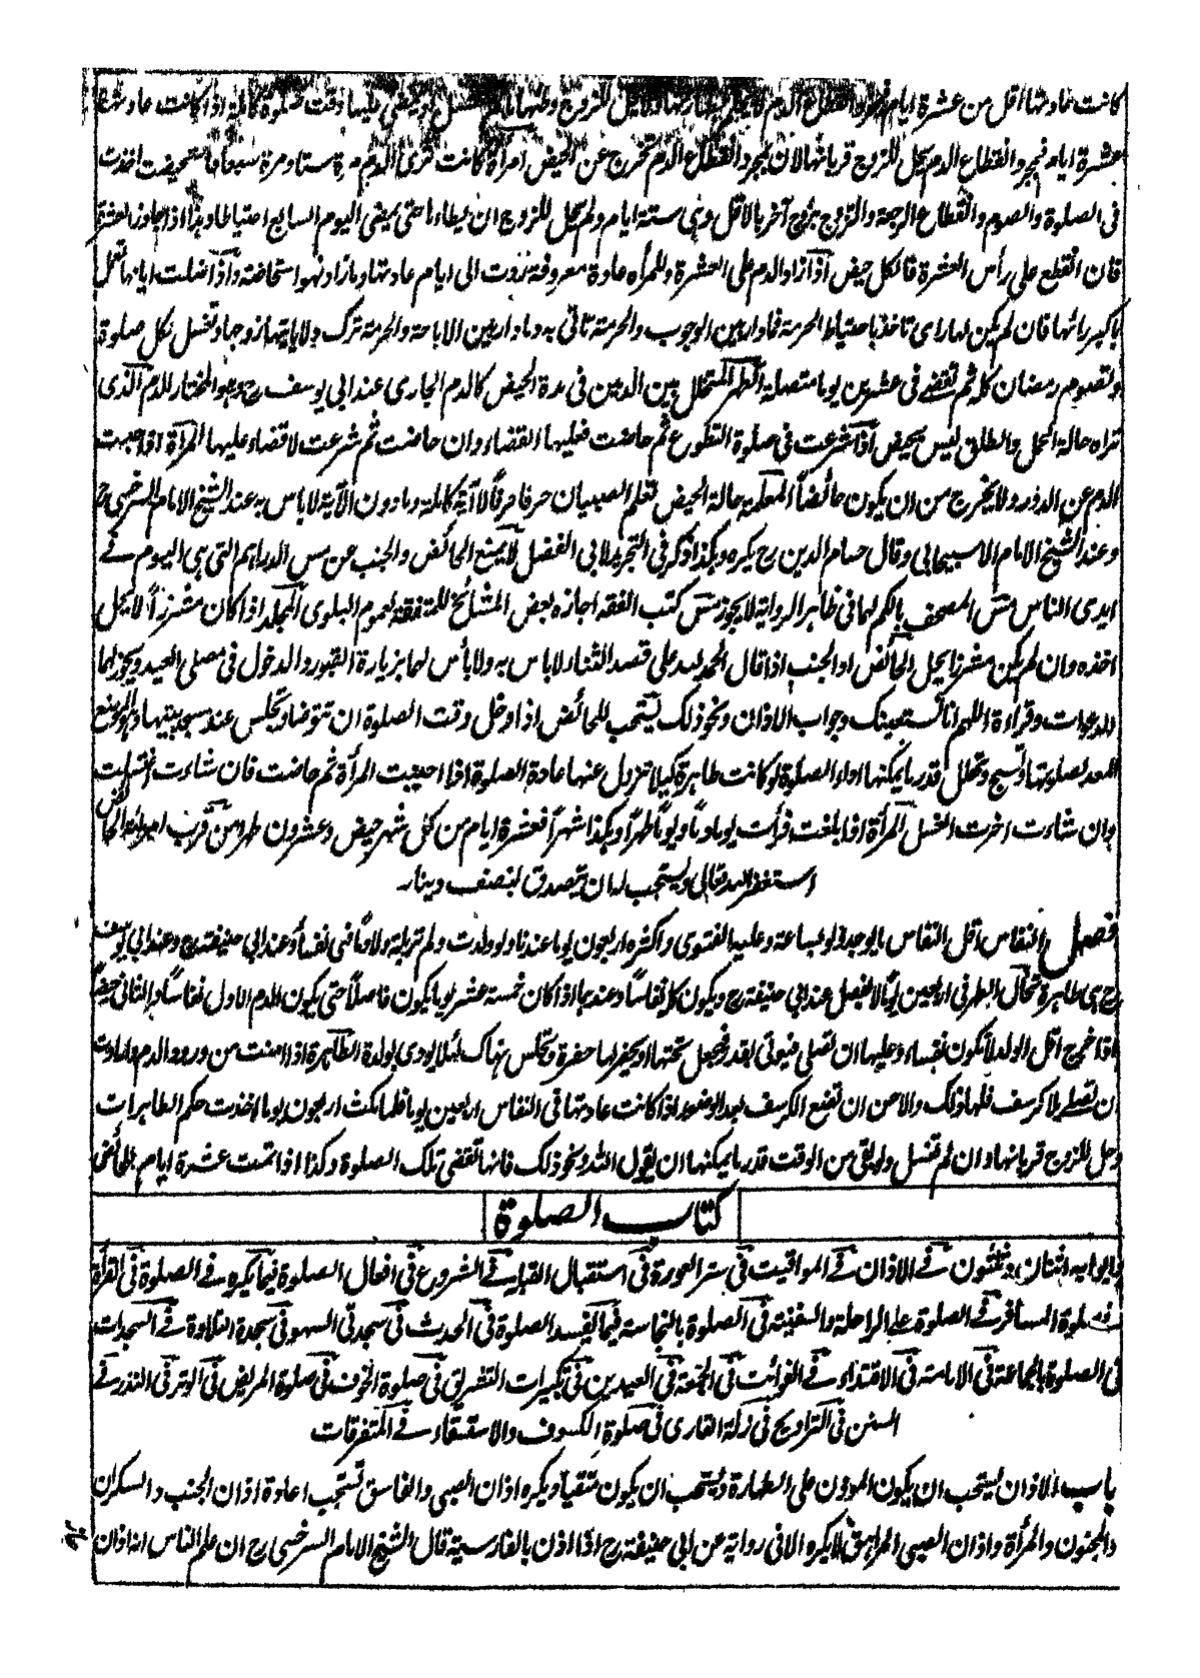 كانت عادتها اقل من عشرة ايام فبمجرد انقطاع الدم لا يحل للزوج وطيها تغتسل او يمضى عليها وقت صلوة كاملة اذا كانت عادتها
عشرة ايام فبمجرد انقطاع الدم يحل للزوج قربانها لان بمجرد انقطاع الدم تخرج عن الحيض امرأة كانت ترى الدم مرة ستا ومرة سبعا فاستحيضت اخذت
فى الصلوة والصوم وانقطاع الرجعة والتزوج بزوج آخر بالاقل وهى ستة ايام ولم يحل للزوج ان يطاءها حتى يمضى اليوم السابع احتياطا وهذا اذا جاوز العشرة
فان انقطع على رأس العشرة فالكل حيض اذا زاد الدم على العشرة وللمرأة عادة معروفة ردت الى ايام عادتها وما زاد فهو استحاضة واذا اضلت ايامها تعمل
باكبر رائها فان لم يكن لها راى تاخذ باحتياط الحرمة فما دار بين الوجوب والحرمة تاتى به وما دار بين الاباحة والحرمة ترك ولا ياتيها زوجها وتغتسل لكل صلوة
وتصوم رمضان كله ثم تقضے فى عشرين يوما متصلة الطهر المتخلل بين الدمين فى مدة الحيض كالدم الجارى عند ابى يوسف رح وهو المختار الدم الذى
تراه حالة الحبل والطلق ليس بحيض اذا شرعت فى صلوة التطوع ثم حاضت فعليها القضاء وان حاضت ثم شرعت لا قضاء عليها المرأة اذا حبست
الدم عن الدرور لا يخرج من ان يكون حائضا المعلمة حالة الحيض تعلم الصبيان حرفا حرفا لا آية كاملة وما دون الآية لا باس به عند الشيخ الامام السرخسى رح
وعند الشيخ الامام الاسبيجابى وقال حسام الدين رح يكره وهكذا ذكر فى التجريد لابى الفضل لا يمنع الحائض والجنب عن مس الدراهم التى هى اليوم فے
ايدى الناس مس المصحف بالكم لهما فى ظاهر الرواية لا يجوز مس كتب الفقه اجازه بعض المشائخ للمتفقة لعموم البلوى المجلد اذا كان مشرزا لا يحل
اخذه وان لم يكن مشرزا يحل الحائض او الجنب اذا قال الحمد لله على قصد الثناء لا باس به ولا بأس لهما بزيارة القبور والدخول فى مصلى العيد ويجوز لهما
الدعوات وقراءة اللهم انا نستعينك وجواب الاذان ونحو ذلك يستحب للحائض اذا دخل وقت الصلوة ان تتوضأ وتجلس عند مسجد بيتها وهو الموضع
المعد لصلوتها وتسبح وتهلل قدر ما يمكنها اداء الصلوة لو كانت طاهرة كيلا تزول عنها عادة الصلوة اذا اجنبت المرأة ثم حاضت فان شاءت اغتسلت
وان شاءت اخرت الغسل المرأة اذا بلغت فرأت يوما دما ويوما طهرا وهكذا شهرا فعشرة ايام من كل شهر حيض وعشرون طهر ومن قرب امرأته الحائض
استغفر الله تعالى ويستحب له ان يتصدق بنصف دينار
فصل النفاس اقل النفاس ما يوجد ولو بساعة وعليه الفتوى واكثره اربعون يوما عندنا ولو ولدت ولم تر بلة ولا دما فهى نفساء عند ابى حنيفة رح وعند ابى يوسف
رح هى طاهرة تخلل الطهر فى اربعين يوما لا يفصل عند ابى حنيفة رح ويكون كله نفاسا وعندهما اذا كان خمسة عشر يوما يكون فاصلا حتى يكون الدم الاول نفاسا والثانى حيضا
اذا خرج اقل الولد لا تكون نفساء وعليها ان تصلى فيوتى بقدر فيجعل تحتها او يحفر لها حفرة وتجلس هناك لئلا يوذى بولدها الطاهرة اذا امنت من ورود الدم وارادت
ان تصلى بلا كرسف فلها ذلك والاحسن ان تضع الكرسف بعد الوضوء اذا كانت عادتها فى النفاس اربعين يوما فلما مكثت اربعون يوما اخذت حكم الطاهرات
وحل للزوج قربانها وان لم تغتسل ولو بقى من الوقت قدر ما يمكنها ان يقول الله ونحو ذلك فانها تقضى تلك الصلوة وكذا اذا تمت عشرة ايام للحائض
كتاب الصلوة
وابوابه اثنان وثلثون فے الاذان فے المواقيت فى ستر العورة فى استقبال القبلة فے الشروع فى افعال الصلوة فيما يكره فے الصلوة فى القرأة
فے صلوة المسافر فے الصلوة على الراحلة والسفينة فى الصلوة بالنجاسة فيما يفسد الصلوة فى الحدث فى سجدتى السهو فى سجدة التلاوة فے السجدات
فى الصلوة بالجماعة فى الامامة فى الاقتداء فے الفوائت فى الجمعة فى العيدين فى تكبيرات التشريق فى صلوة الخوف فى صلوة المريض فى الوتر فى النذر فے
السنن فى التراويح فى زلة القارى فى صلوة الكسوف والاستسقاء فے المتفرقات
باب الاذان يستحب ان يكون الموذن على الطهارة ويستحب ان يكون متقيا ويكره اذان الصبى والفاسق تستحب اعادة اذان الجنب والسكران
والمجنون والمرأة واذان الصبى المراهق لا يكره الا فى رواية عن ابى حنيفة رح اذا اذن بالفارسية قال الشيخ الامام السرخسى رح ان علم الناس انه اذان